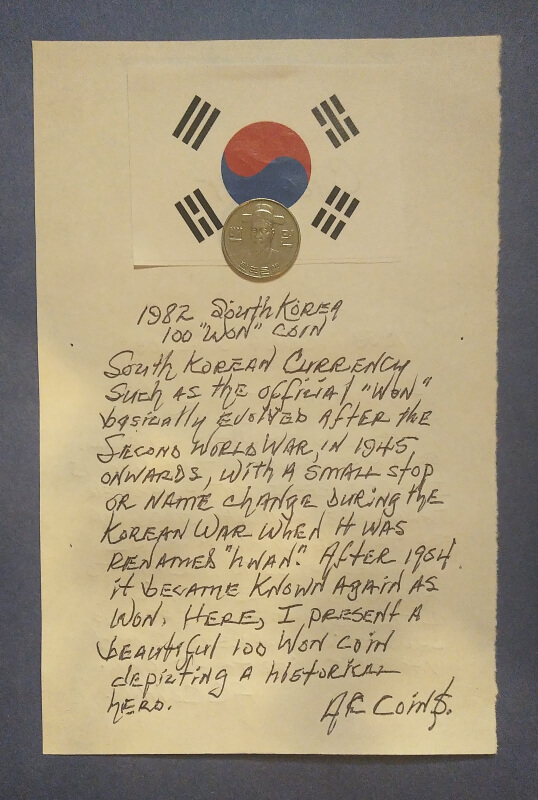 백 원
1982 South Korea
100 "Won" Coin
South Korean Currency
Such as the official "Won"
basically evolved after the
Second World War, in 1945
onwards, with a small stop
or name change during the
Korean War when it was
renamed "hwan". After 1964
it became known again as
Won. Here, I present a
beautiful 100 Won coin
depicting a historical
hero.
AE Coin$.